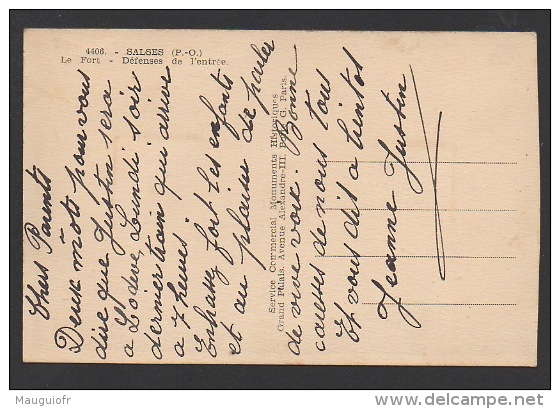 4406. - SALSES (P.-O.)
Le Fort - Défenses de l'entrée.
Chers Parents
Deux mots pour vous
dire que Justin sera
a Lodeve Lundi soir
dernier train qui arrive
a 7 heures
Embrassez fort les enfants
et au plaisir de parler
Service Commercial Monuments Historiques
Grand Palais, Avenue Alexandre-III, Porte G. Paris.
de vive voix. Bonne
caresses de nous tous
Et vous dit a bientot
Jeanne Justin
Mauguiofr
delcampe.net